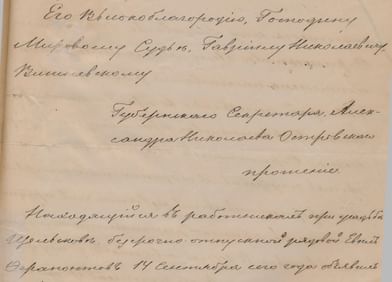 Его Высокоблагородию, Господину
Мировому Судье, Гавриилу Николаевичу
Вишневскому
Губернского Секретаря, Алек-
сандра Николаева Островского
прошение
Находящийся въ работникахъ при усадьбе
Щелыково, безсрочно отпускной рядовой Евтей
Ферапонтовъ 14 Сентября сего года объявилъ